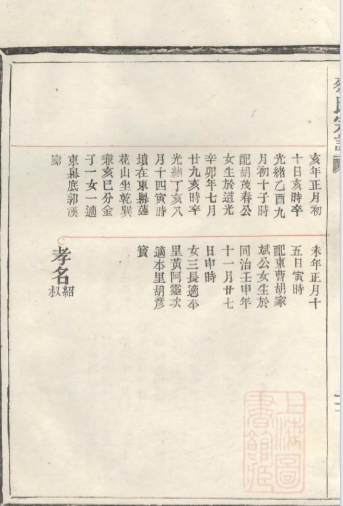 亥年正月初
十日亥時卒
光緒乙酉九
月初十子時
配胡茂春公
女生於道光
辛卯年七月
廿九亥時卒
光緒丁亥八
月十四寅時
墳在東
花山坐乾巽
兼亥巳分金
子一女一適
東 底郭漢
未年正月十
五日寅時
配東曹胡
斌公女生於
同治壬申年
十一月廿七
日申時
女三長適本
里黃阿靈次
適本里胡彥
寶
孝名
紹
叔
上海圖
書館藏